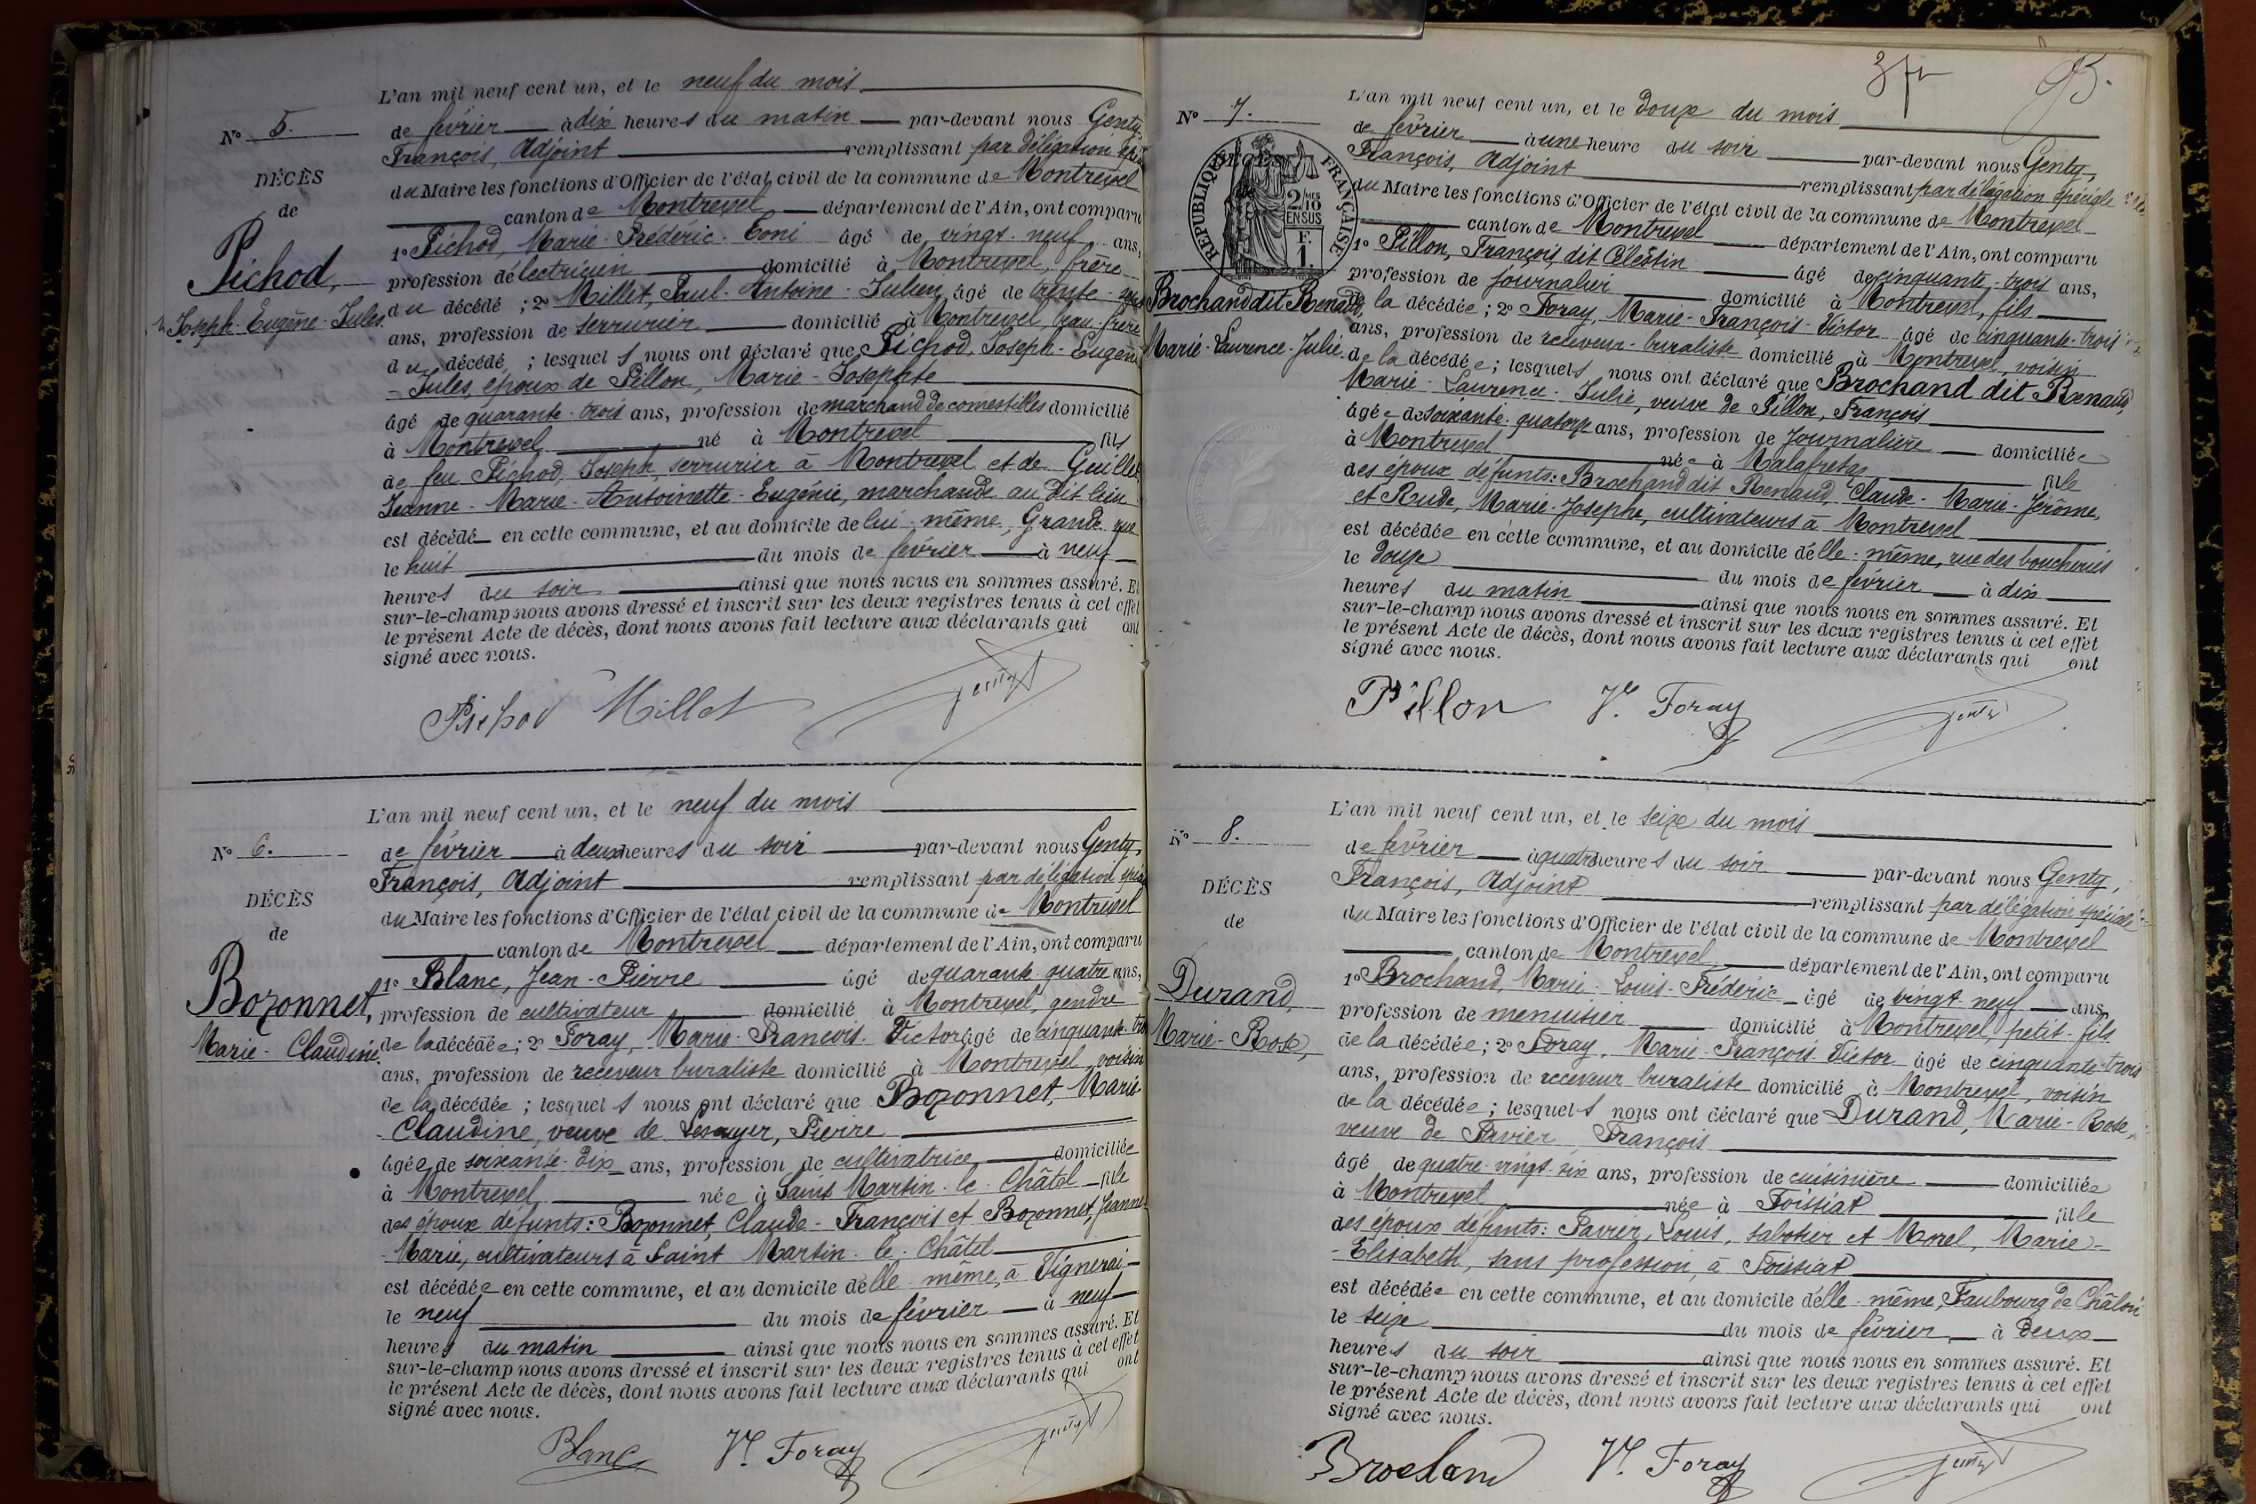 L'an mil neuf cent un, et le neuf du mois
N° 5.
de février à dix heures du matin par-devant nous Genty,
François, Adjoint remplissant par délégation
DÉCÈS
du Maire les fonctions d'Officier de l'état civil de la commune de Montrevel
de
canton de Montrevel département de l'Ain, ont comparu
1° Pichod, Marie-Fréderic-Toni âgé de vingt-neuf ans,
Pichod,
profession d'électricien domicilié à Montrevel, frère
Joseph-Eugène-Jules
du décédé ; 2° Millet, Paul-Antoine-Julien âgé de trente
ans, profession de serrurier domicilié à Montrevel, beau-frère
du décédé ; lesquels nous ont déclaré que Pichod, Joseph-Eugène
-Jules, époux de Pillon, Marie-Josephte
âgé de quarante-trois ans, profession de marchand de comestibles domicilié
à Montrevel né à Montrevel fils
de feu Pichod, Joseph, serrurier à Montrevel et de Guillet
Jeanne-Marie-Antoinette-Eugénie, marchande au dit lieu
est décédé en cette commune, et au domicile de lui-même, Grande rue
le huit du mois de février à neuf
heures du soir ainsi que nous nous en sommes assuré. Et
sur-le-champ nous avons dressé et inscrit sur les deux registres tenus à cet effet
le présent Acte de décès, dont nous avons fait lecture aux déclarants qui ont
signé avec nous.
Pichod Millet Genty
L'an mil neuf cent un, et le neuf du mois
N° 6.
de février à deux heures du soir par-devant nous Genty,
François, Adjoint remplissant par délégation
DÉCÈS
du Maire les fonctions d'Officier de l'état civil de la commune de Montrevel
de
canton de Montrevel département de l'Ain, ont comparu
1° Blanc, Jean-Pierre âgé de quarante-quatre ans,
Bozonnet,
profession de cultivateur domicilié à Montrevel, gendre
Marie-Claudine
de la décédée ; 2° Foray, Marie-François-Victor âgé de cinquante-trois
ans, profession de receveur buraliste domicilié à Montrevel, voisin
de la décédée ; lesquels nous ont déclaré que Bozonnet, Marie-
Claudine, veuve de Pierre
âgée de soixante-dix ans, profession de cultivatrice domiciliée
à Montrevel née à Saint Martin-le-Châtel fille
des époux défunts : Bozonnet, Claude-François et Bozonnet, Jeanne-
-Marie, cultivateurs à Saint Martin-le-Châtel
est décédée en cette commune, et au domicile d'elle-même, à
le neuf du mois de février à neuf
heures du matin ainsi que nous nous en sommes assuré. Et
sur-le-champ nous avons dressé et inscrit sur les deux registres tenus à cet effet
le présent Acte de décès, dont nous avons fait lecture aux déclarants qui ont
signé avec nous.
Blanc Vr. Foray Genty
L'an mil neuf cent un, et le douze du mois
N° 7.
de février à une heure du soir par-devant nous Genty,
François, Adjoint remplissant par délégation spéciale
RÉPUBLIQUE FRANÇAISE
2/10 EN SUS
F. 1.
du Maire les fonctions d'Officier de l'état civil de la commune de Montrevel
canton de Montrevel département de l'Ain, ont comparu
1° Pillon, François, dit Célestin âgé de cinquante-trois ans,
profession de journalier domicilié à Montrevel, fils
Brochand dit Renaud,
de la décédée ; 2° Foray, Marie-François-Victor âgé de cinquante-trois
ans, profession de receveur-buraliste domicilié à Montrevel, voisin
Marie-Laurence-Julie
de la décédée ; lesquels nous ont déclaré que Brochand dit Renaud,
Marie-Laurence-Julie, veuve de Pillon, François
âgée de soixante-quatorze ans, profession de Journalière domiciliée
à Montrevel née à Malafretaz fille
des époux défunts : Brochand dit Renaud, Claude-Marie-Jérôme,
et Rude, Marie-Josephe, cultivateurs à Montrevel
est décédée en cette commune, et au domicile d'elle-même, rue des boucheries
le douze du mois de février à dix
heures du matin ainsi que nous nous en sommes assuré. Et
sur-le-champ nous avons dressé et inscrit sur les deux registres tenus à cet effet
le présent Acte de décès, dont nous avons fait lecture aux déclarants qui ont
signé avec nous.
Pillon Vr. Foray Genty
L'an mil neuf cent un, et le seize du mois
N° 8.
de février à quatre heures du soir par-devant nous Genty,
François, Adjoint remplissant par délégation spéciale
DÉCÈS
du Maire les fonctions d'Officier de l'état civil de la commune de Montrevel
de
canton de Montrevel département de l'Ain, ont comparu
1° Brochand, Marie-Louis-Fréderic âgé de vingt-neuf ans,
Durand,
profession de menuisier domicilié à Montrevel, petit-fils
Marie-Rose,
de la décédée ; 2° Foray, Marie-François-Victor âgé de cinquante-trois
ans, profession de receveur buraliste domicilié à Montrevel, voisin
de la décédée ; lesquels nous ont déclaré que Durand, Marie-Rose,
veuve de Pavier, François
âgé de quatre-vingt-six ans, profession de cuisinière domiciliée
à Montrevel née à Foissiat fille
des époux défunts : Pavier, Louis, sabotier et Morel, Marie-
-Elisabeth, sans profession, à Foissiat
est décédée en cette commune, et au domicile d'elle-même, Faubourg de Châlon
le seize du mois de février à deux
heures du soir ainsi que nous nous en sommes assuré. Et
sur-le-champ nous avons dressé et inscrit sur les deux registres tenus à cet effet
le présent Acte de décès, dont nous avons fait lecture aux déclarants qui ont
signé avec nous.
Brochand Vr. Foray Genty